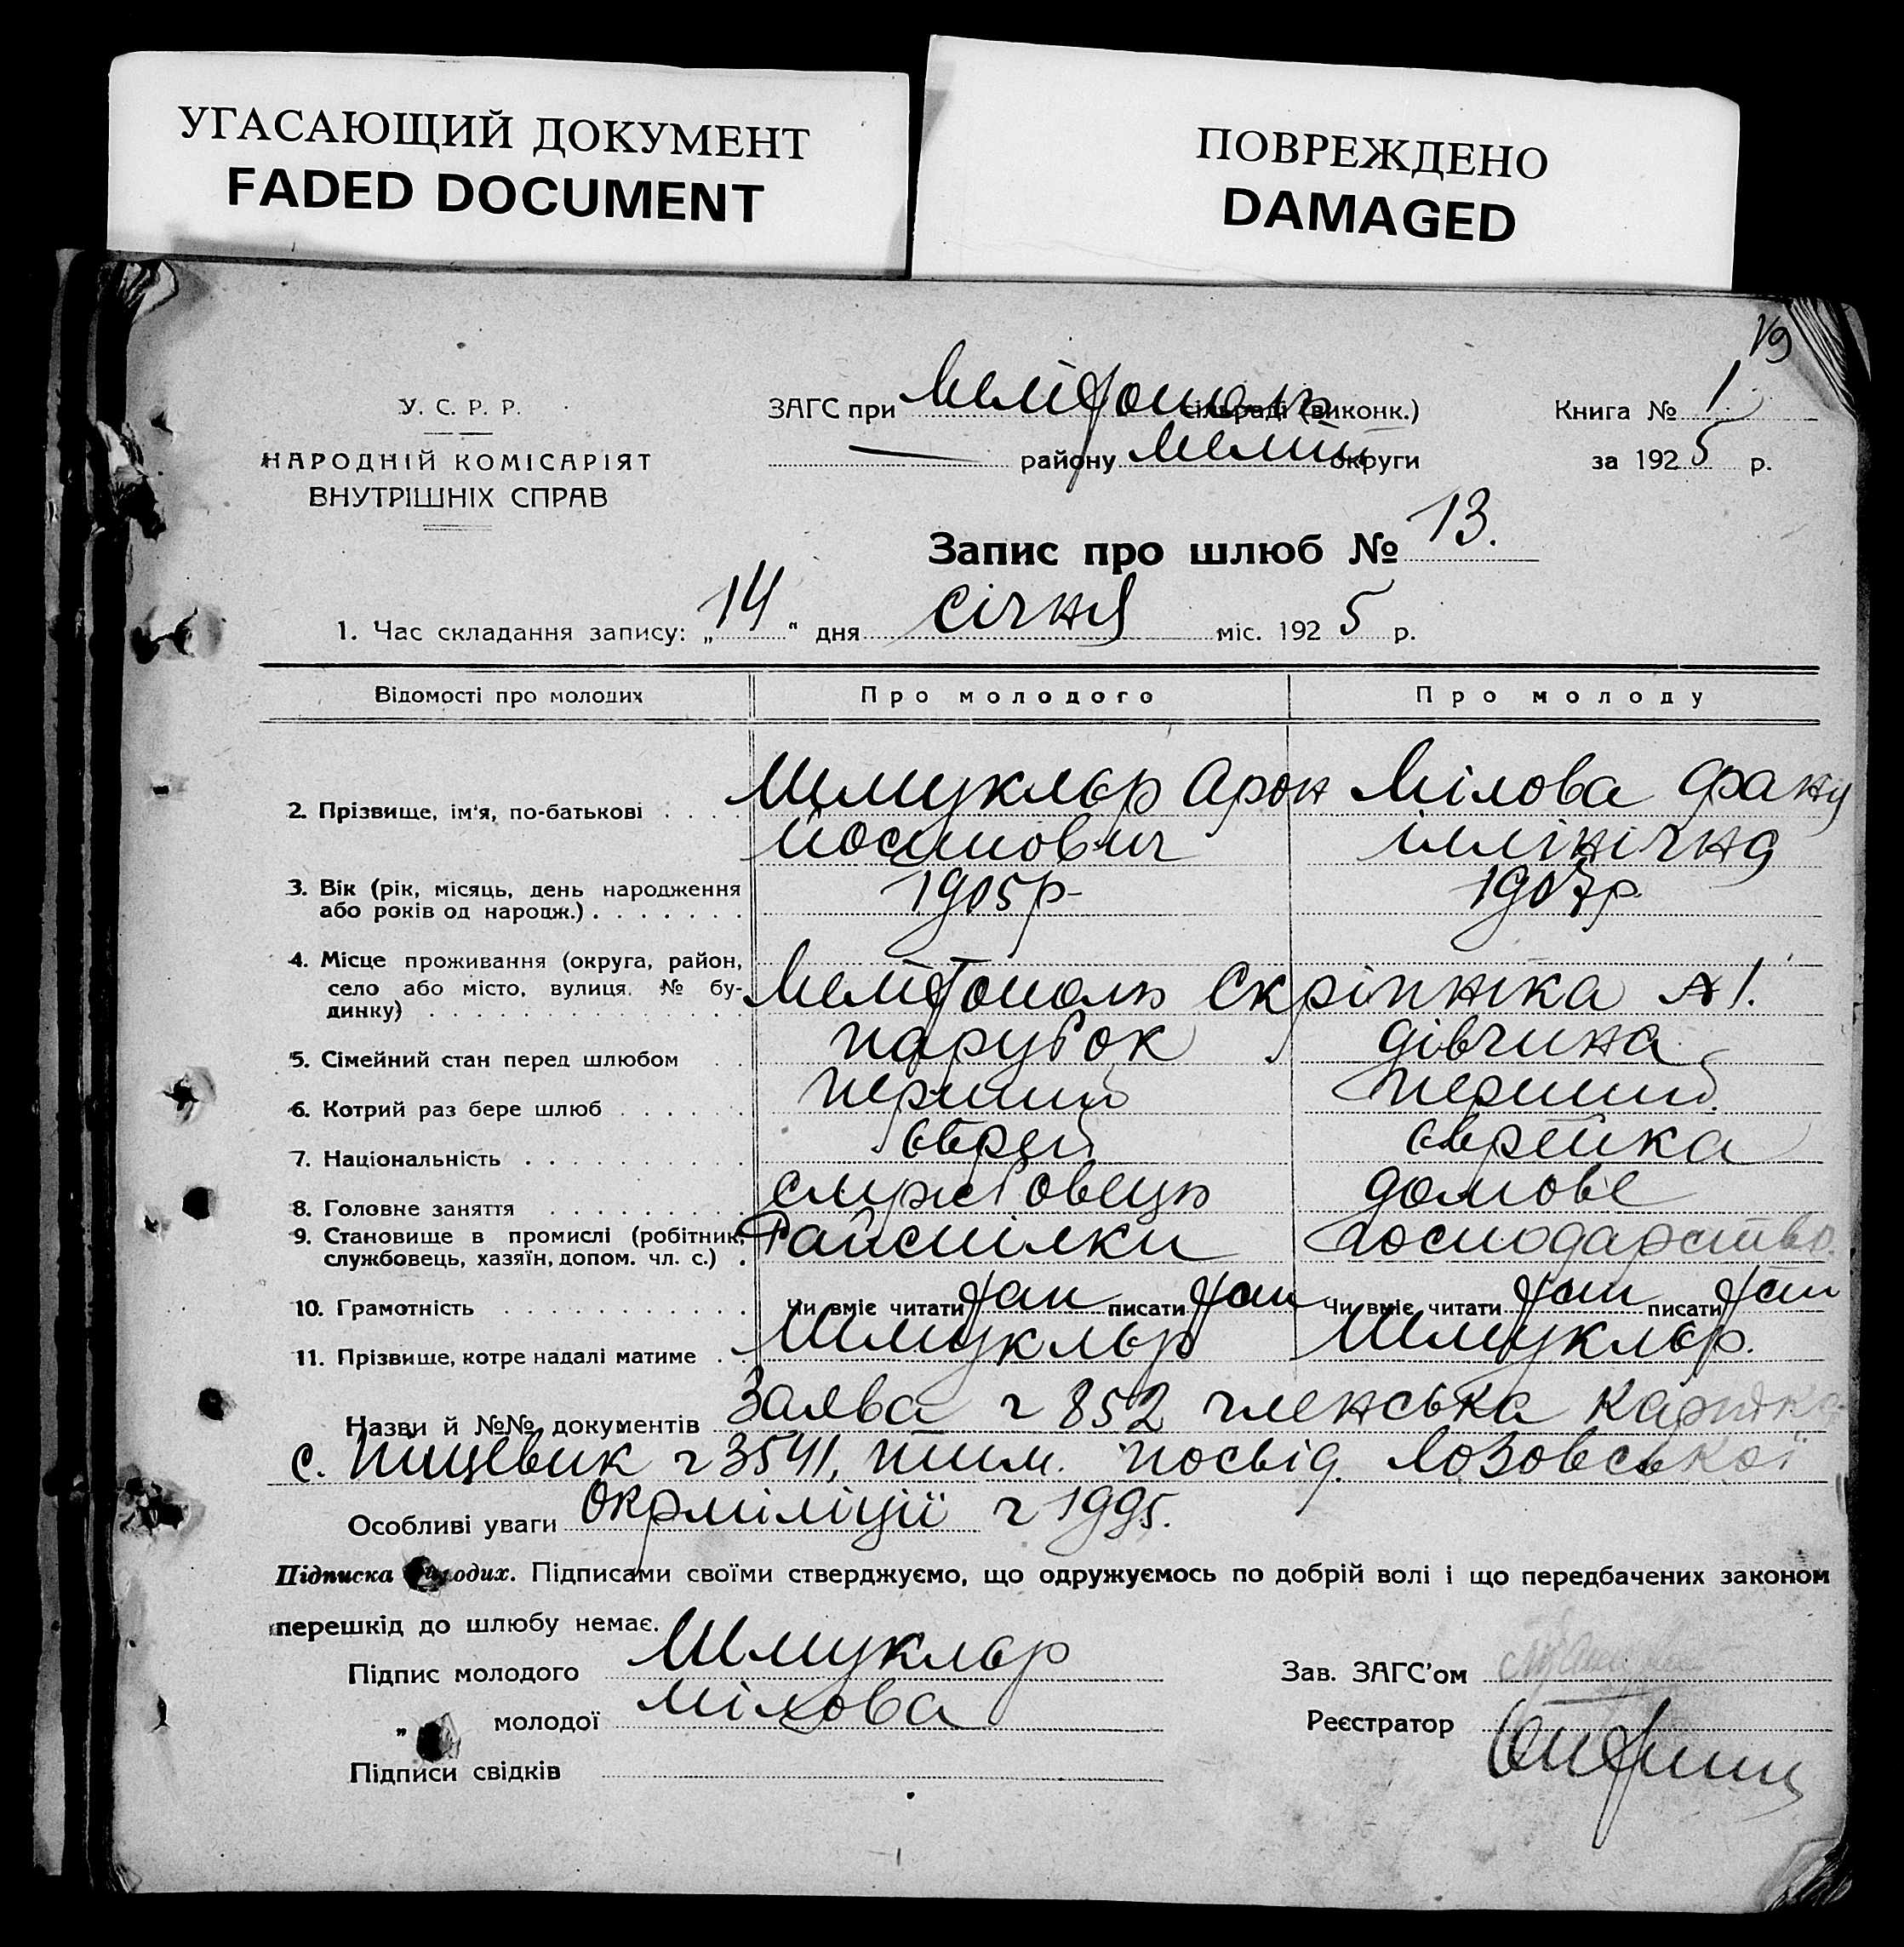 УГАСАЮЩИЙ ДОКУМЕНТ
FADED DOCUMENT
ПОВРЕЖДЕНО
DAMAGED
19
У. С. Р. Р.
НАРОДНІЙ КОМІСАРІЯТ
ВНУТРІШНІХ СПРАВ
ЗАГС при Мелітополь сільраді (виконк.)
— району Меліт округи
Книга № 1
за 1925 р.
Запис про шлюб № 13.
1. Час складання запису: „14“ дня січня міс. 1925 р.
Відомості про молодих Про молодого Про молоду
2. Прізвище, ім'я, по-батькові Шмуклєр Арон Мілова Фаня
Йосипович Іллінічна
3. Вік (рік, місяць, день народження 1905р 1907р
або років од народж.)
4. Місце проживання (округа, район,
село або місто, вулиця. № бу- Мелітополь Скріпніка № 1.
динку)
5. Сімейний стан перед шлюбом парубок дівчина
6. Котрий раз бере шлюб перший перший
7. Національність єврей єврейка
8. Головне заняття службовець домове
9. Становище в промислі (робітник, Райспілки господарство.
службовець, хазяїн, допом. чл. с.)
10. Грамотність Чи вміє читати так писати так Чи вміє читати так писати так
11. Прізвище, котре надалі матиме Шмуклєр Шмуклєр.
Назви й №№ документів Заява ч 852 членська картка
с. Пищевик ч 3541, тим. посвід. Лозовської
Особливі уваги Окрміліції ч 1995.
Підписка молодих. Підписами своїми стверджуємо, що одружуємось по добрій волі і що передбачених законом
перешкід до шлюбу немає.
Підпис молодого Шмуклєр
Зав. ЗАГС'ом
„ молодої Мілова
Реєстратор
Підписи свідків